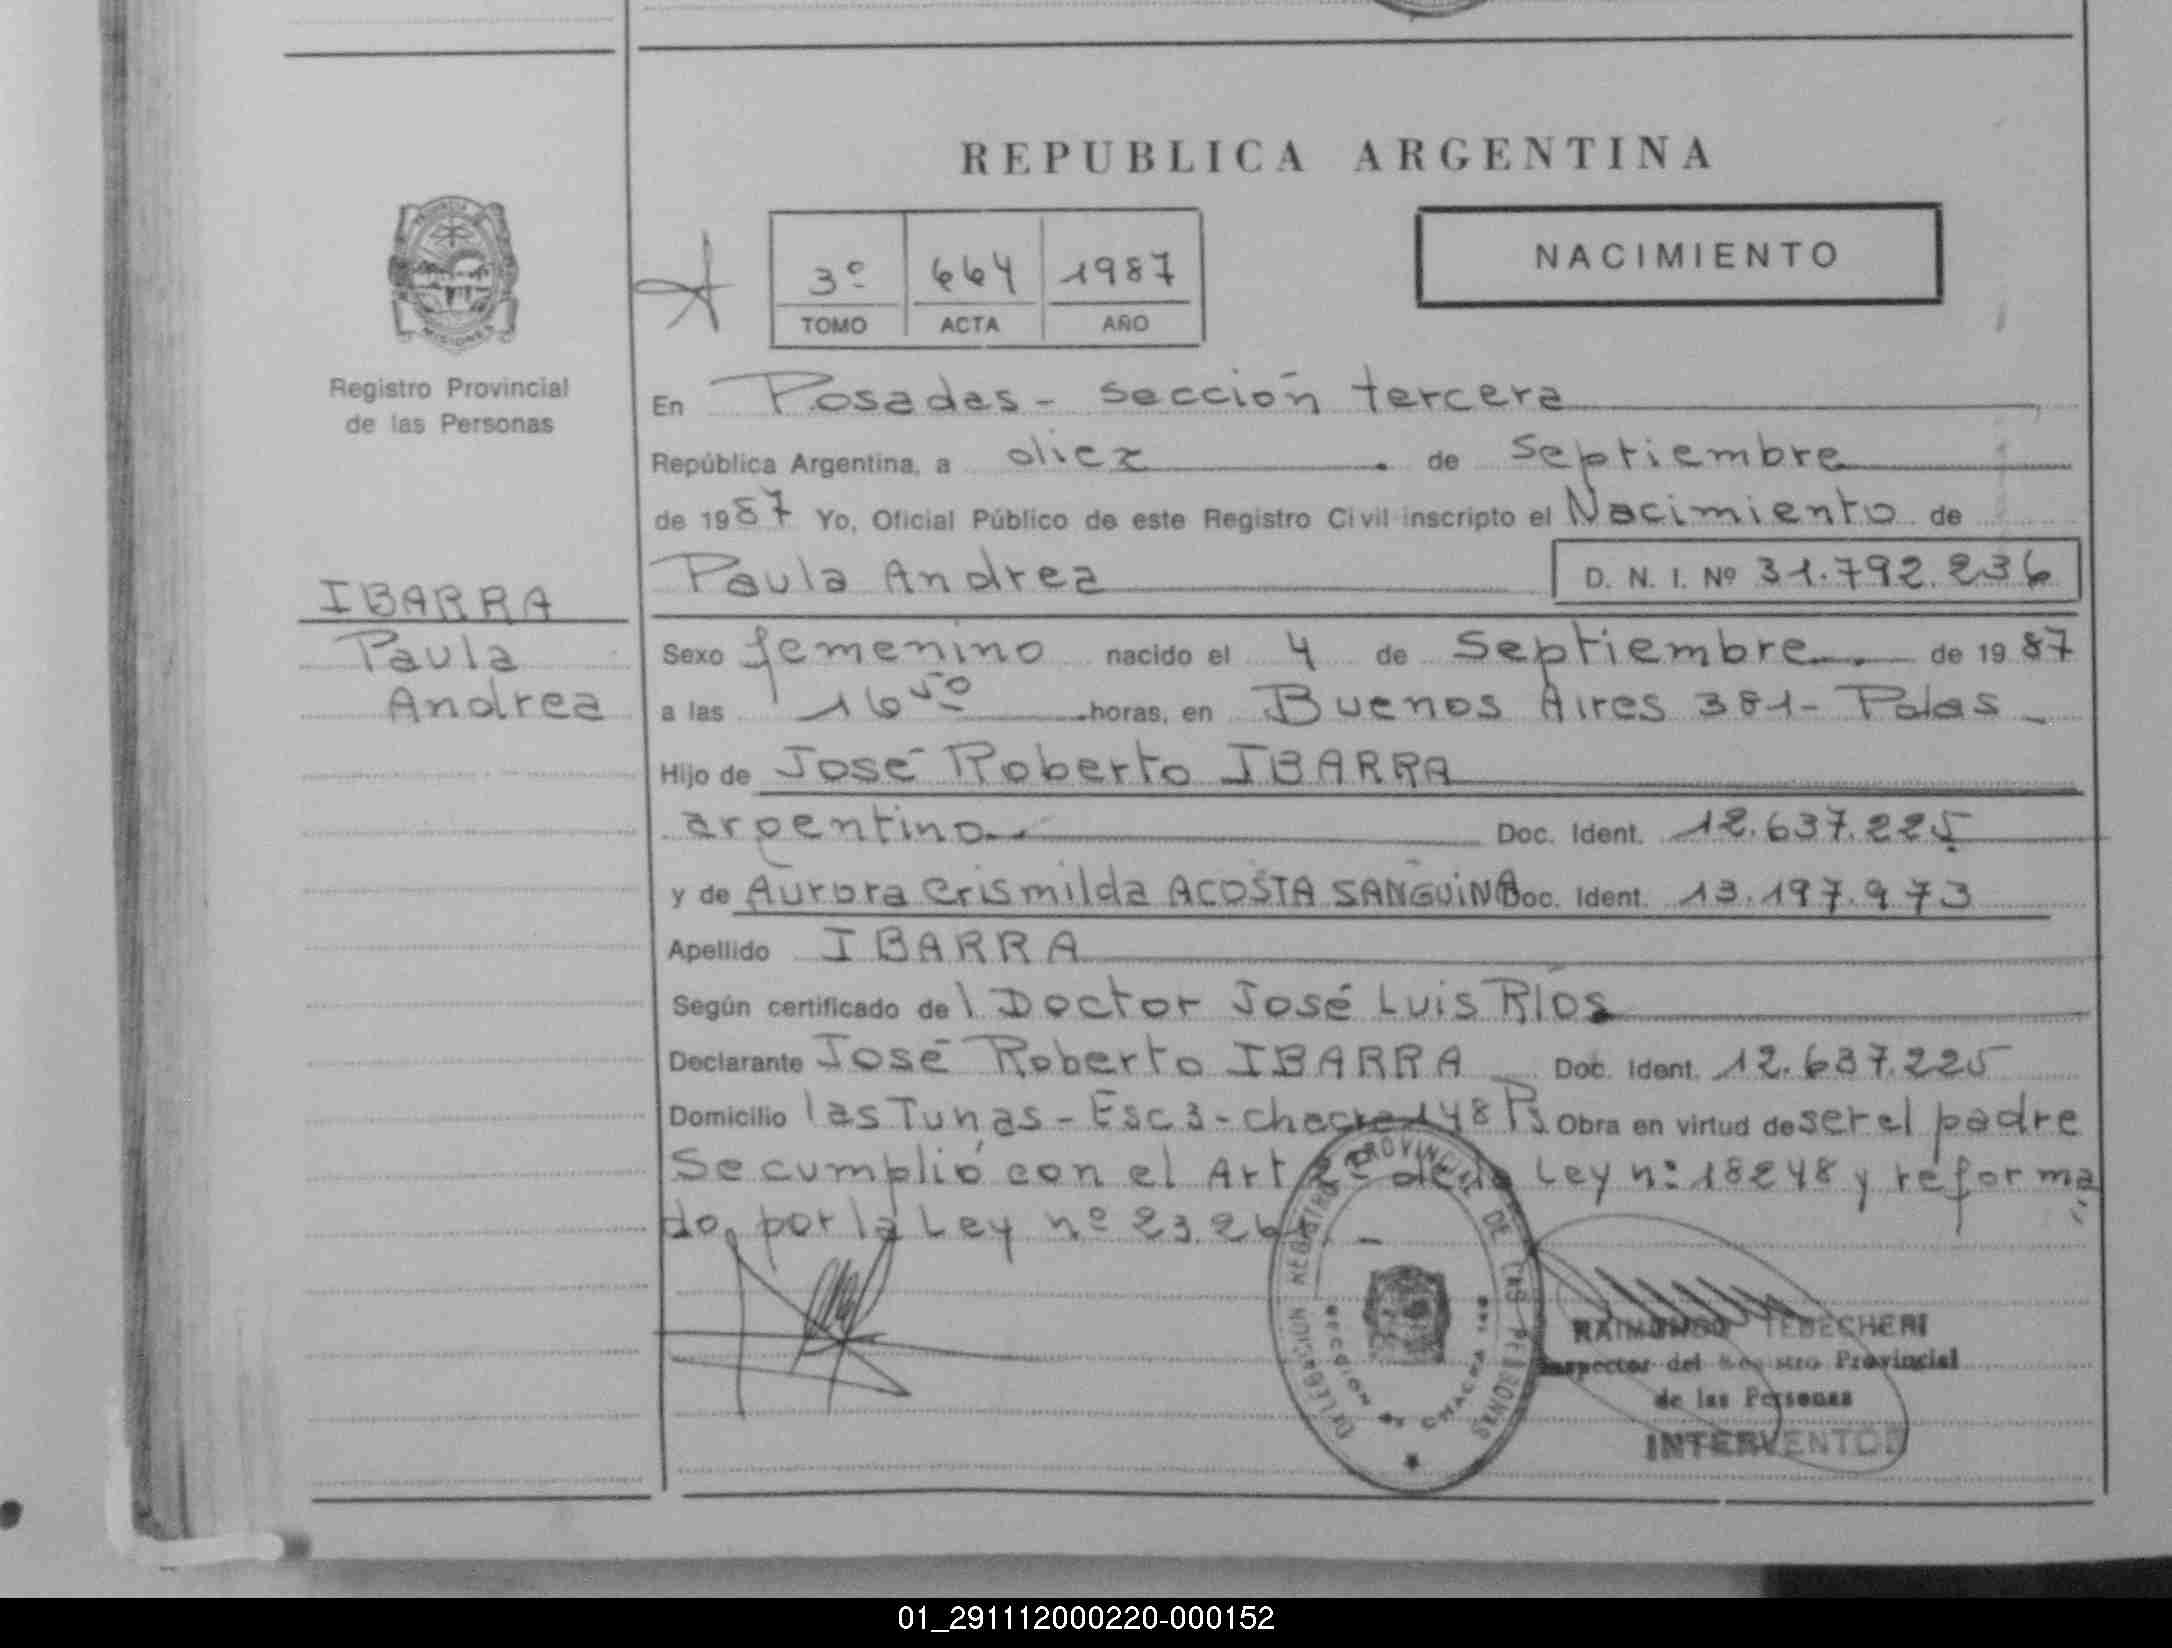 REPUBLICA ARGENTINA
3º 664 1987
TOMO ACTA AÑO
NACIMIENTO
PROVINCIA DE MISIONES
Registro Provincial
de las Personas
IBARRA
Paula
Andrea
En Posadas - sección tercera
República Argentina, a diez de septiembre
de 1987 Yo, Oficial Público de este Registro Civil inscripto el Nacimiento de
Paula Andrea D. N. I. Nº 31.792.236
Sexo femenino nacido el 4 de Septiembre de 1987
a las 16 50 horas, en Buenos Aires 381 - Pdas -
Hijo de José Roberto IBARRA
argentino Doc. Ident. 12.637.225
y de Aurora Crismilda ACOSTA SANGUINA Doc. Ident. 13.197.973
Apellido IBARRA
Según certificado del Doctor José Luis Ríos
Declarante José Roberto IBARRA Doc. Ident. 12.637.225
Domicilio las Tunas - Esc 3 - chacra 148 Ps Obra en virtud de ser el padre
Se cumplió con el Art 2º de la Ley nº 18248 y reforma
do, por la Ley nº 23.26
DELEGACION REGISTRO PROVINCIAL DE LAS PERSONAS
SECCION CHACRA
RAIMUNDO TEBECHERI
Inspector del Registro Provincial
de las Personas
INTERVENTOR
01_291112000220-000152